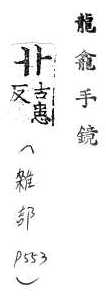 龍龕手鏡
卝古患反
(雜部 P553)